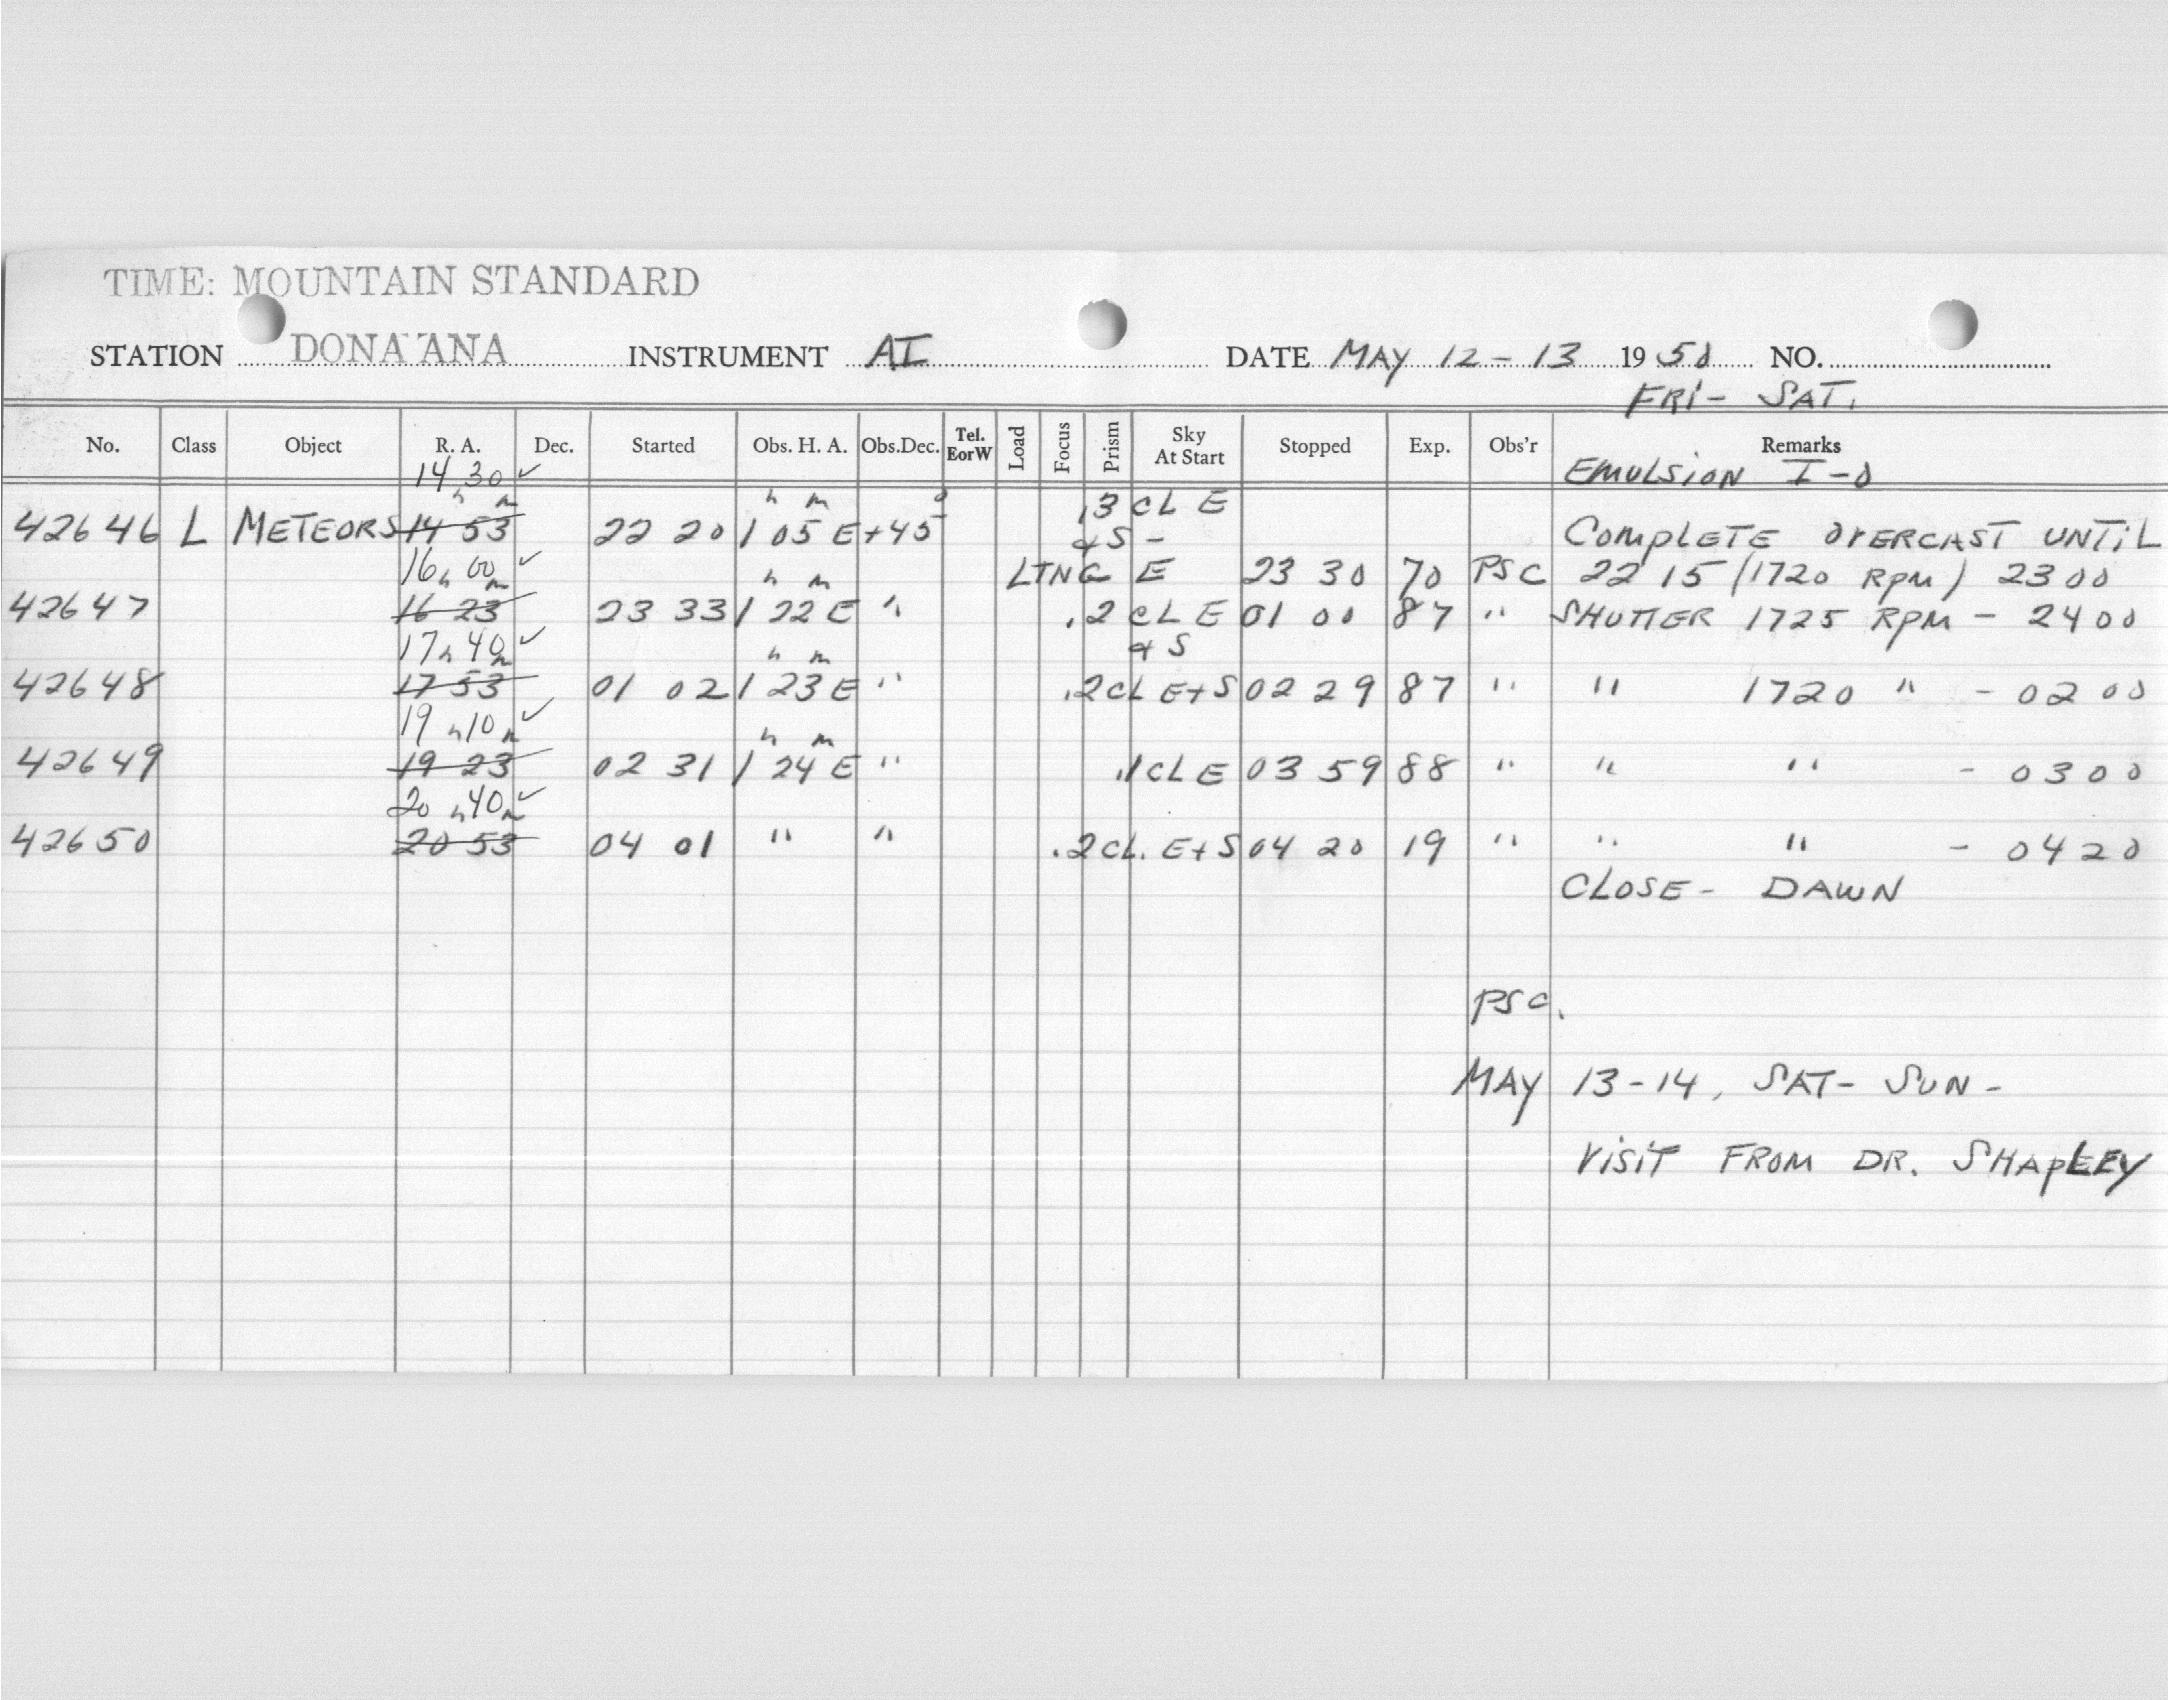 TIME: MOUNTAIN STANDARD
STATION DONA ANA INSTRUMENT AI DATE MAY 12-13 1950 NO.
FRI- SAT.
No. Class Object R. A. Dec. Started Obs. H. A. Obs.Dec. Tel. EorW Load Focus Prism Sky At Start Stopped Exp. Obs'r Remarks
14 30 ✓ EMULSION I-O
h m h m o .3 CL E
42646 L METEORS 14 53 22 20 1 05 E +45 & S - COMPLETE OVERCAST UNTIL
16h 00m ✓ h m LTNG E 23 30 70 PSC 22 15 (1720 RPM) 2300
42647 16 23 23 33 1 22 E " .2 CL E 01 00 87 " SHUTTER 1725 RPM - 2400
17h 40m ✓ h m & S
42648 17 53 01 02 1 23 E " .2 CL E+S 02 29 87 " " 1720 " - 0200
19h 10m ✓ h m
42649 19 23 02 31 1 24 E " .1 CL E 03 59 88 " " " - 0300
20h 40m ✓
42650 20 53 04 01 " " .2 CL. E+S 04 20 19 " " " - 0420
CLOSE- DAWN
PSC.
MAY 13-14, SAT- SUN-
VISIT FROM DR. SHAPLEY